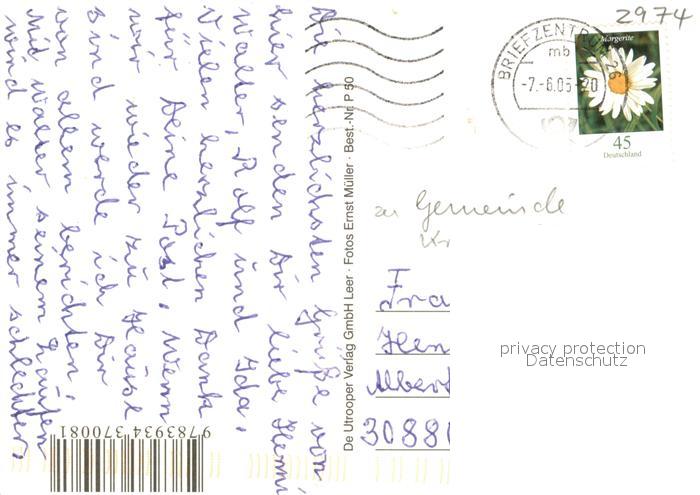 2974
BRIEFZENTRUM 26
mb
-7.-6.05-20
Margerite
45
Deutschland
Die herzlichsten Grüße von
hier senden Dir liebe Henni
Walter, Rolf und Ida.
Vielen herzlichen Dank
für Deine Post. Wenn
wir wieder zu Hause
sind werde ich Dir
von allem berichten.
Mit Walter seinem Laufen
wird es immer schlechter.
De Utrooper Verlag GmbH Leer · Fotos Ernst Müller · Best.-Nr. P 50
zu Gemeinde
Kr
Fra
Hen
Albert
30880
privacy protection
Datenschutz
9 783934 370081